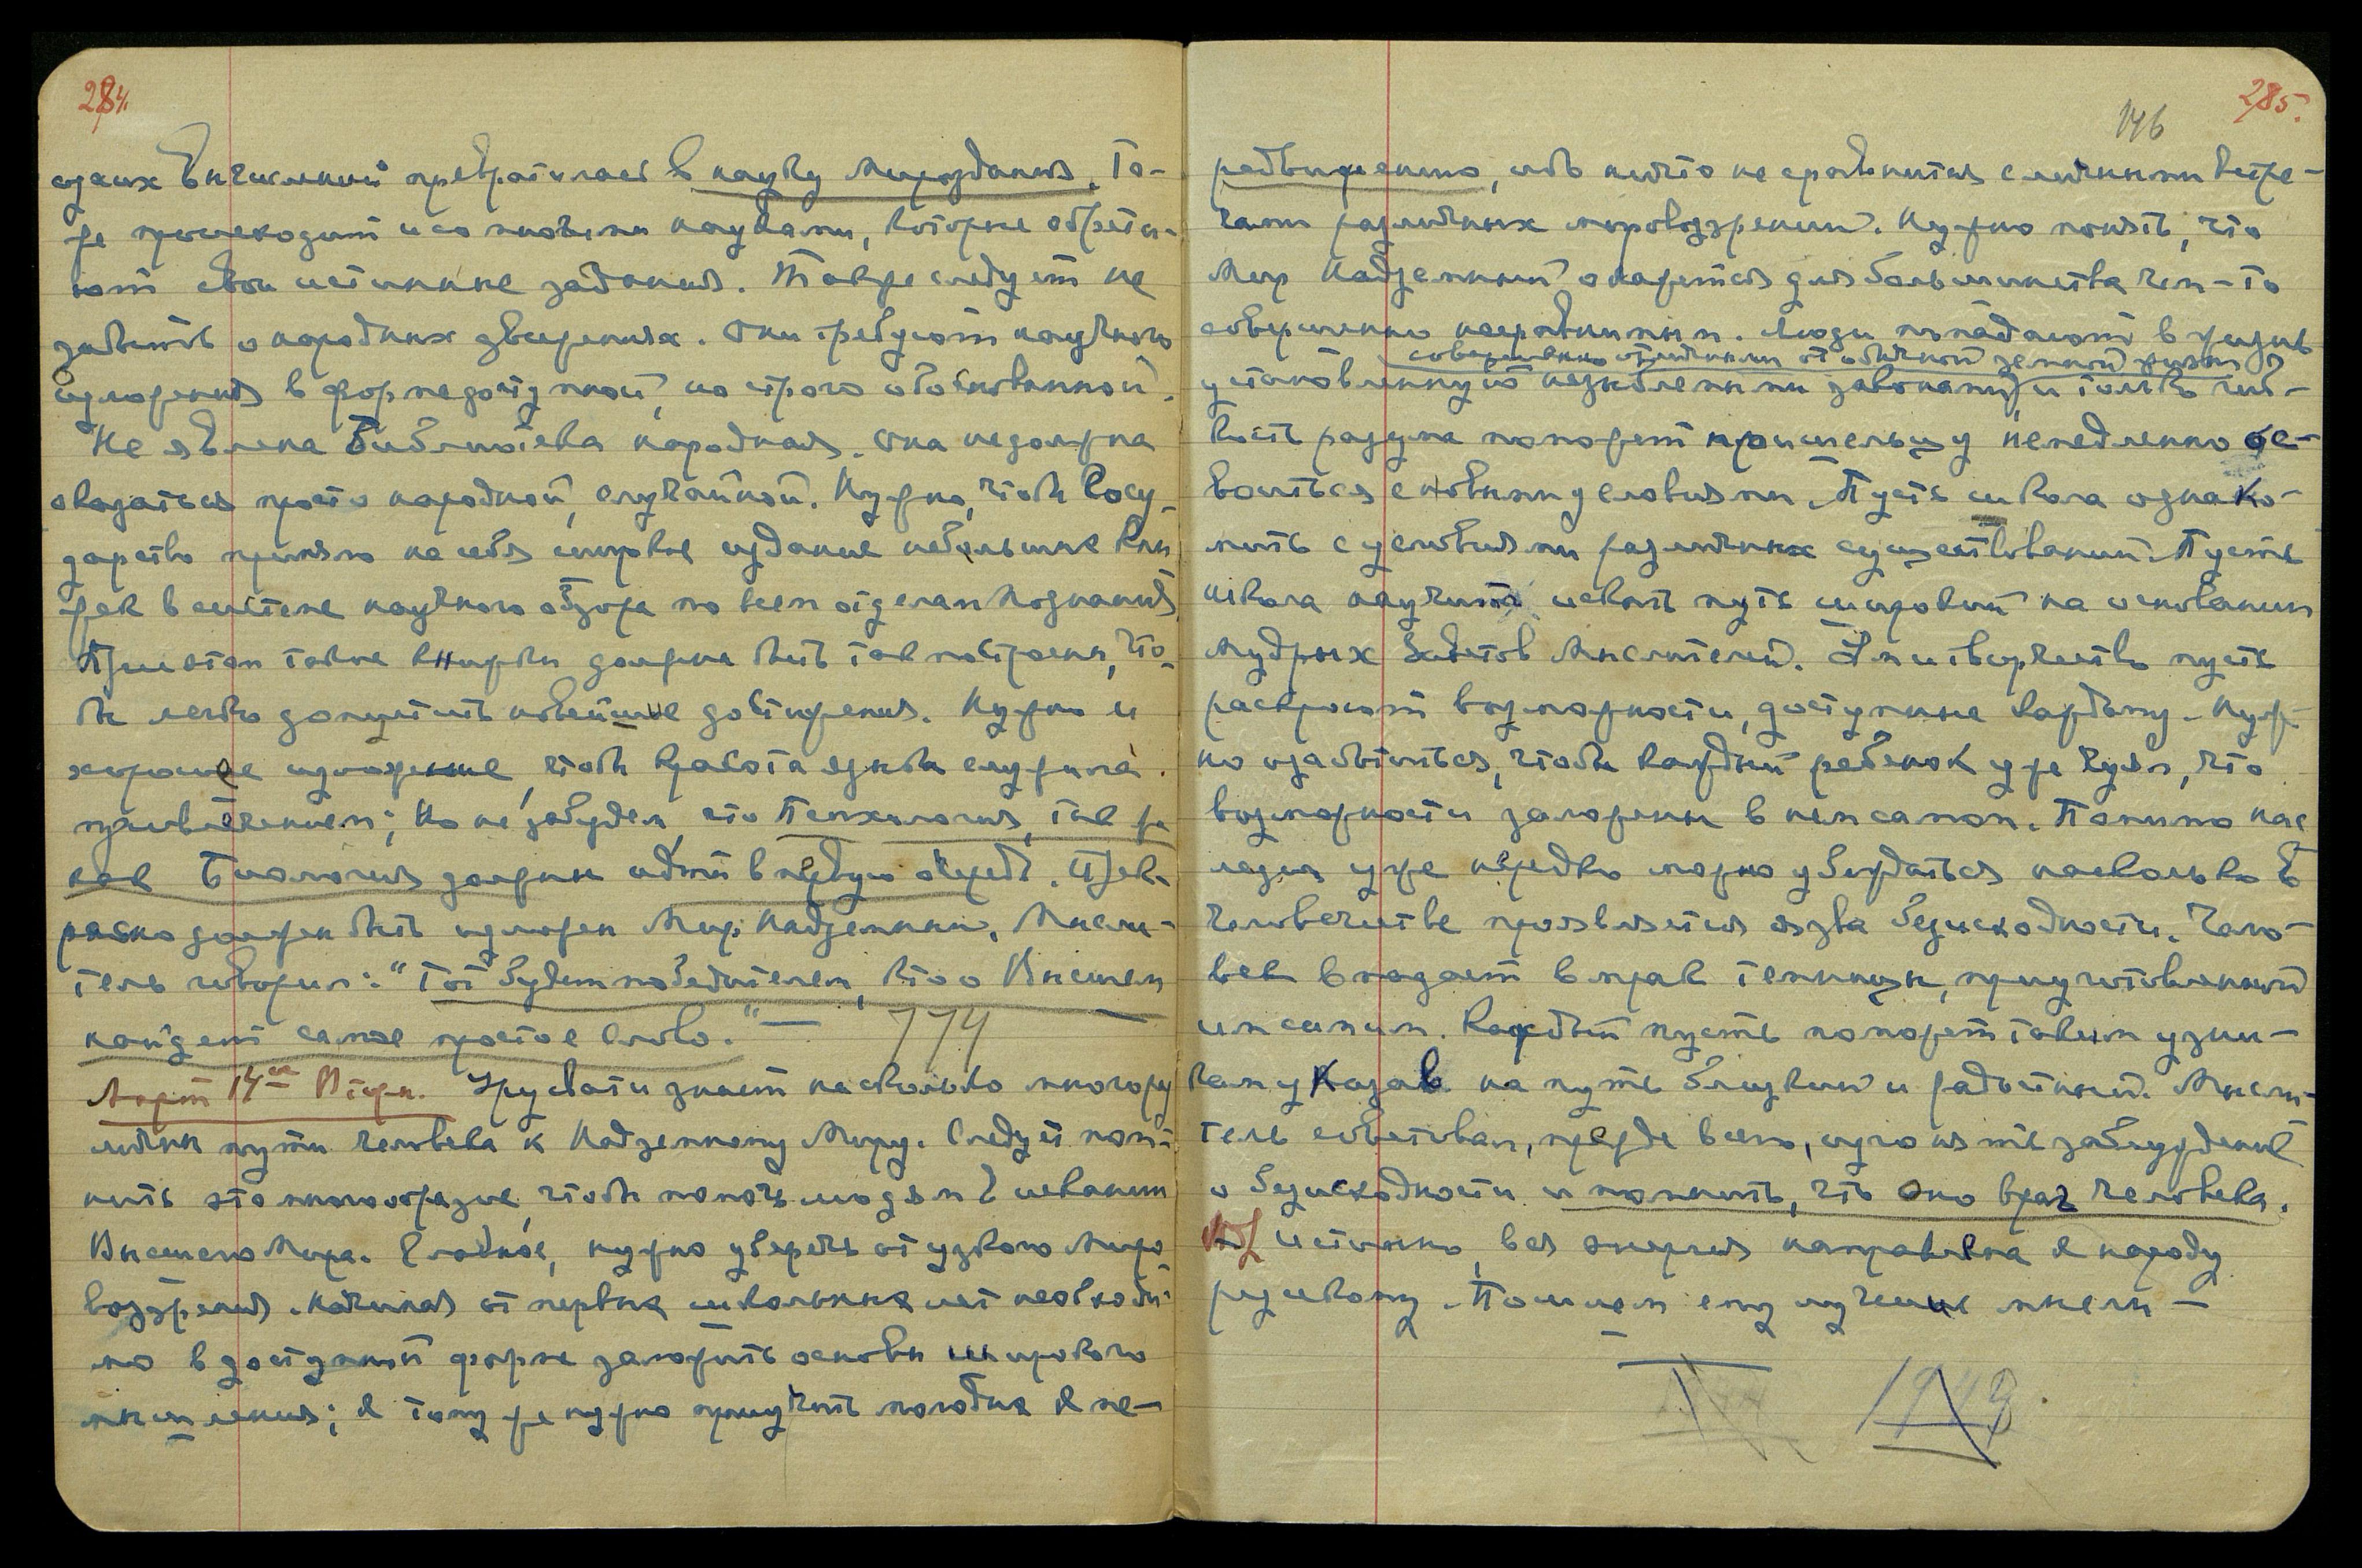 284.
сухих вычислений превратилась в науку Мироздания. То-
же происходит и со многими науками, которые обрета-
ют свои истинные задания. Также следует не
забыть о народных движениях. Они требуют научного
изложения в форме доступной, но строго обоснованной.
Не явлена Библиотека народная. Она не должна
оказаться просто народной, случайной. Нужно, чтобы Госу-
дарство приняло на себя широкое издание небольших кни
жек в системе научного обзора по всем отделам Познания.
При этом такие книжки должны быть так построены, что-
бы легко допустить новейшие достижения. Нужно и
хорошее изложение, чтобы красота языка служила
привлечением; Но не забудем, что Психология, так же
как Биология должны идти в первую очередь. Прек-
расно должен быть изложен Мир Надземный. Мысли-
тель говорил: "Тот будет победителем, кто о Высшем
найдет самое простое слово." — 774
Март 14ое Втор. Урусвати знает насколько многораз
личны пути человека к Надземному Миру. Следует пом-
нить это многообразие, чтобы помочь людям в искании
Высшего Мира. Главное, нужно уберечь от узкого Миро
воззрения. Начиная от первых школьных лет необходи-
мо в доступной форме заложить основы широкого
мышления; к тому же нужно приучить молодых к пе-
285.
146
редвижению, ибо ничто не сравнится с личными встре-
чами различных мировоззрений. Нужно понять, что
Мир Надземный окажется для большинства чем-то
совершенно несравнимым. Люди попадают в жизнь
совершенно отличными от обычной земной жизни
установленную незыблемыми законами, и только гиб-
кость разума поможет пришельцу немедленно ос-
воиться с новыми условиями. Пусть школа ознако-
мить с условиями различных существований. Пусть
школа научит искать путь широкий на основании
Мудрых Заветов Мыслителей. Эти творчество пусть
раскроют возможности, доступные каждому. Нуж-
но озаботиться, чтобы каждый ребенок уже чуял, что
возможности заложены в нем самом. Помимо нас
ледия уже нередко можно убедиться насколько в
человечестве проявляется язва безысходности. Чело-
век впадает в мрак темницы, приуготовленный
им самим. Каждый пусть поможет таким узни-
кам указав на путь близкий и радостный. Мысли-
тель советовал, прежде всего, изгонять заблуждение
о безысходности и помнить, что оно враг человека.
Истинно, вся энергия направлена к народу
русскому. Пошлем ему лучшие мысли —
1949